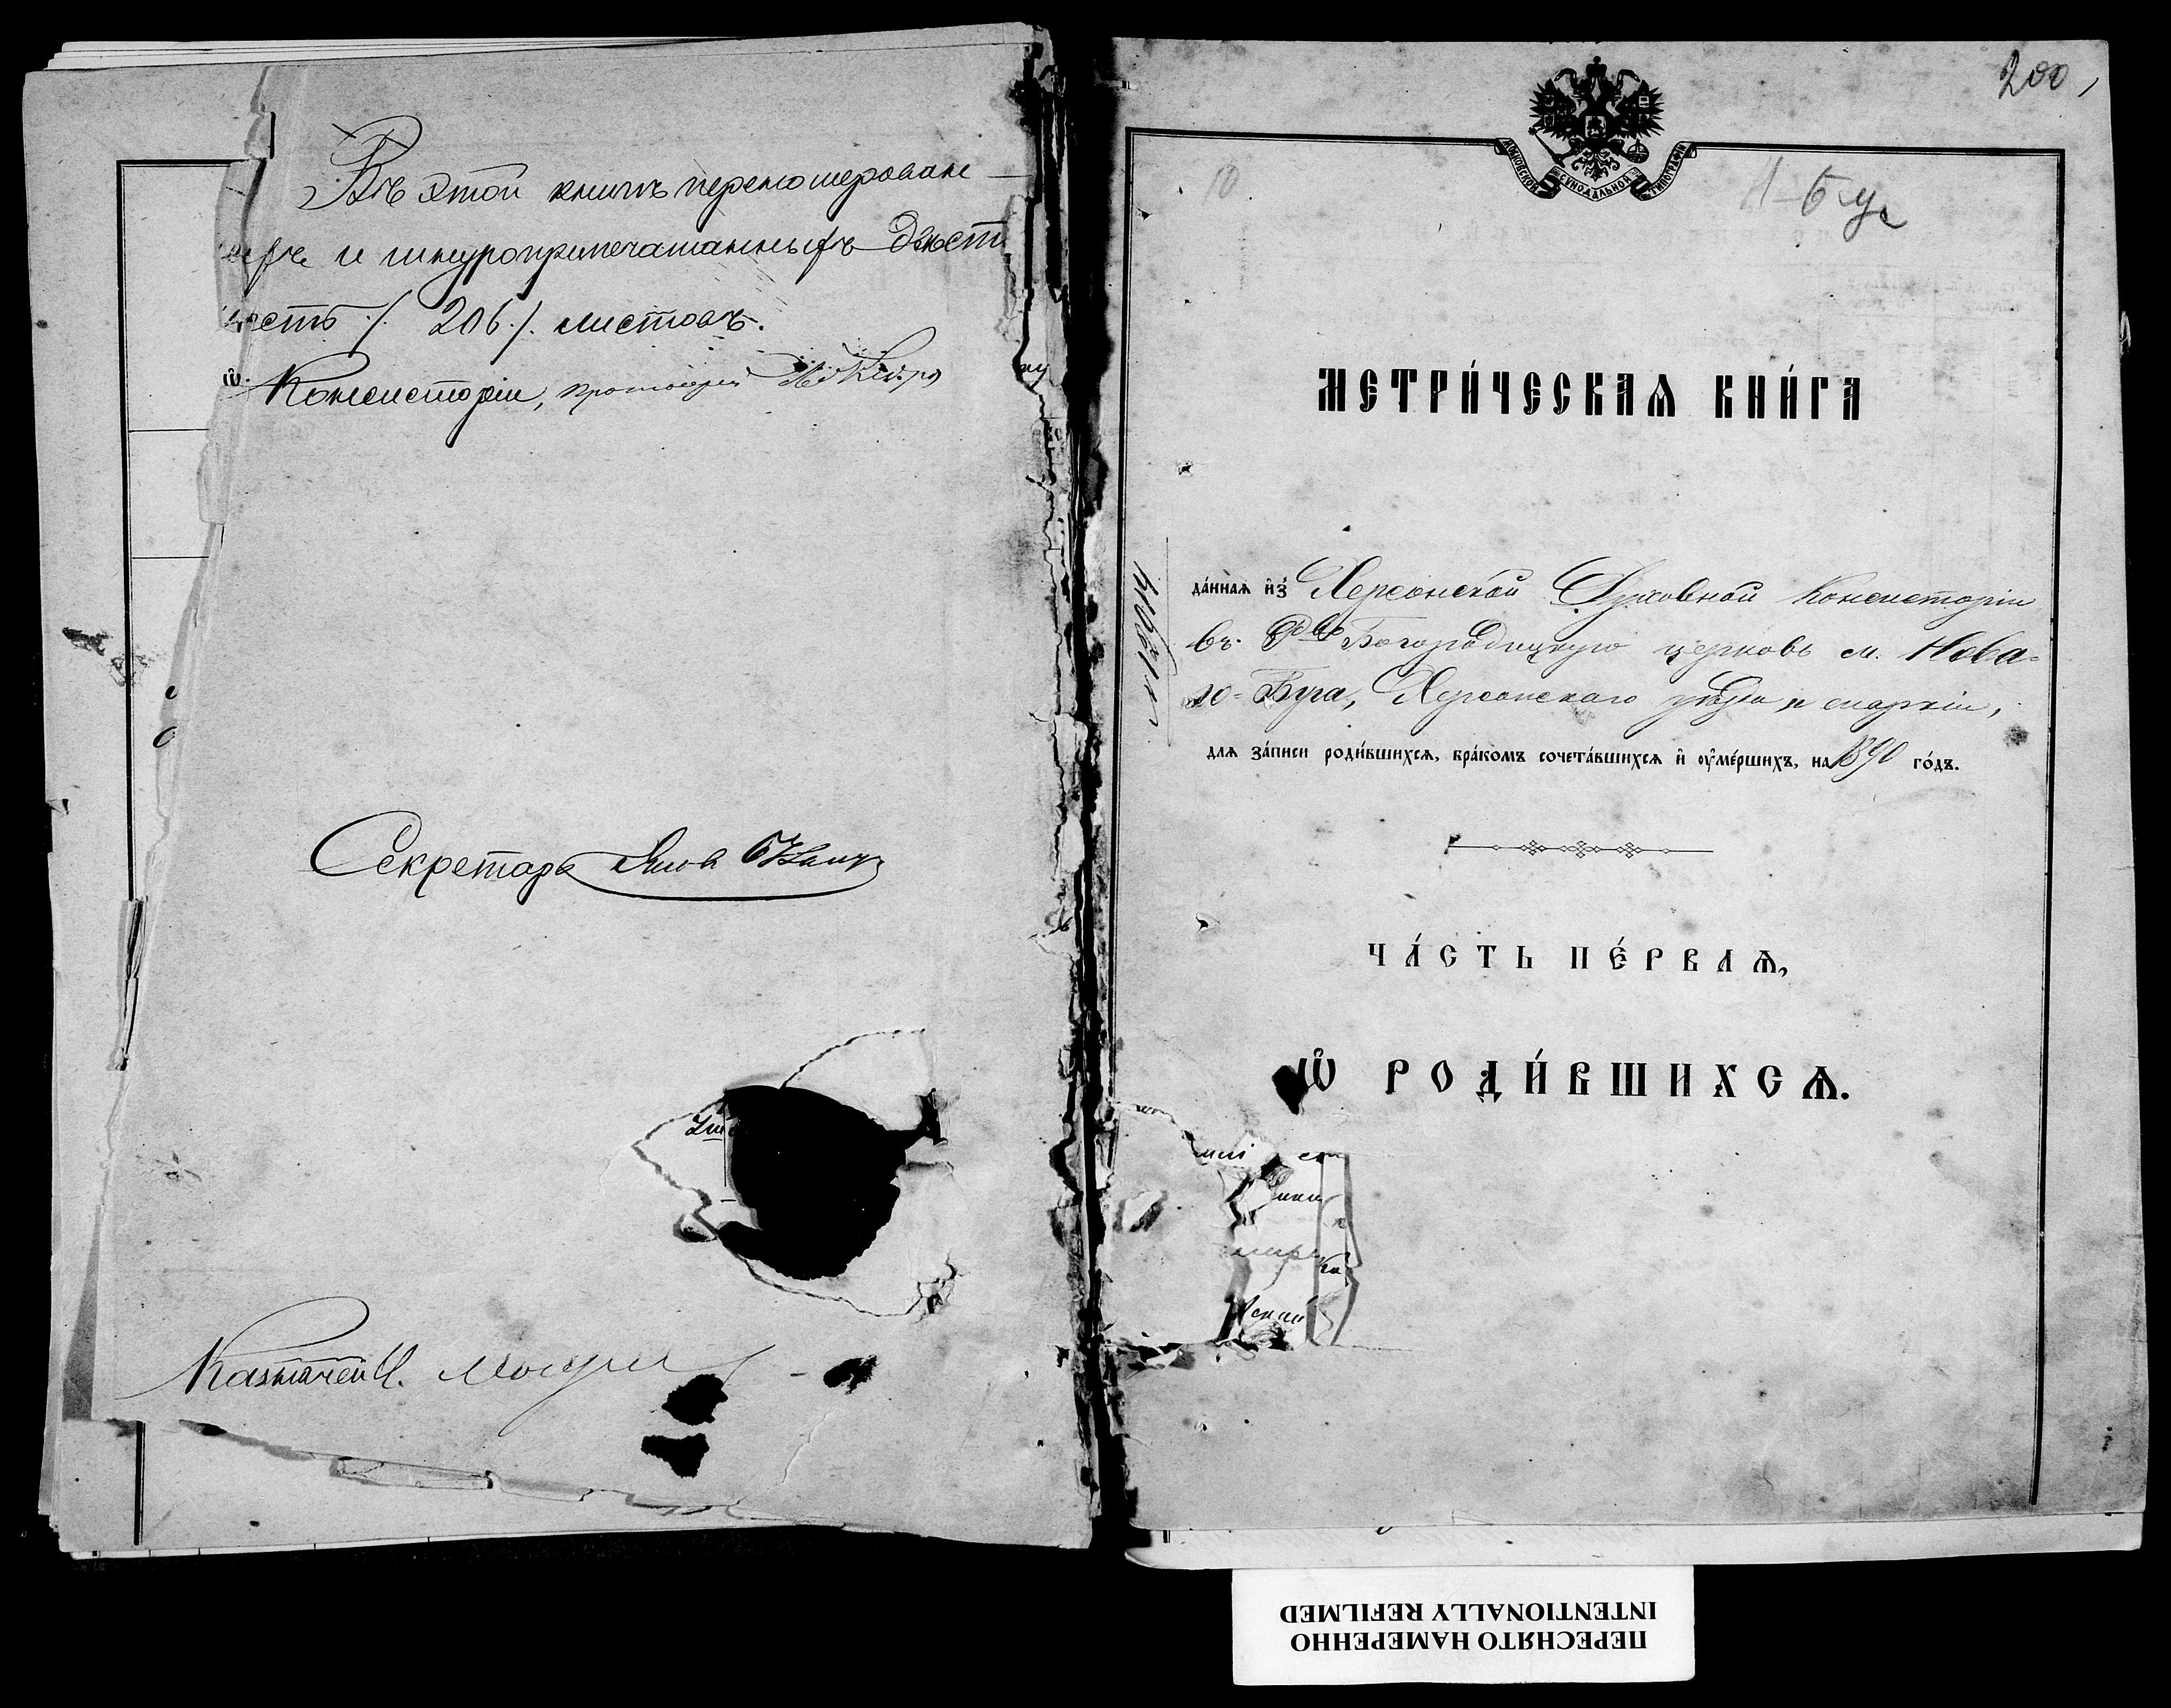 Въ этой книгѣ перенумерован-
ыхъ и шнуроприпечатанныхъ двѣст
шесть /. 206 /. листовъ.
Консисторіи, протоіерей
Секретарь
Казначей И.
200
МОСКОВСКОЙ СѴНОДАЛЬНОЙ ТИПОГРАФІИ
10
Н-Буг
МЕТРИ́ЧЕСКАѦ КНИ́ГА
да́ннаѧ и҆з̾ Херсонской Духовной Консисторіи
въ Рдво Богородицкую церковь м. Нова-
го-Буга, Херсонскаго уѣзда и епархіи,
длѧ за́писи роди́вшихсѧ, бра́комъ сочета́вшихсѧ и҆ ᲂу҆ме́ршихъ, на 1890 го́дъ.
ЧА́СТЬ ПЕ́РВАѦ,
Ѡ҆ РОДИ́ВШИХСѦ.
ПЕРЕСНЯТО НАМЕРЕННО
INTENTIONALLY REFILMED